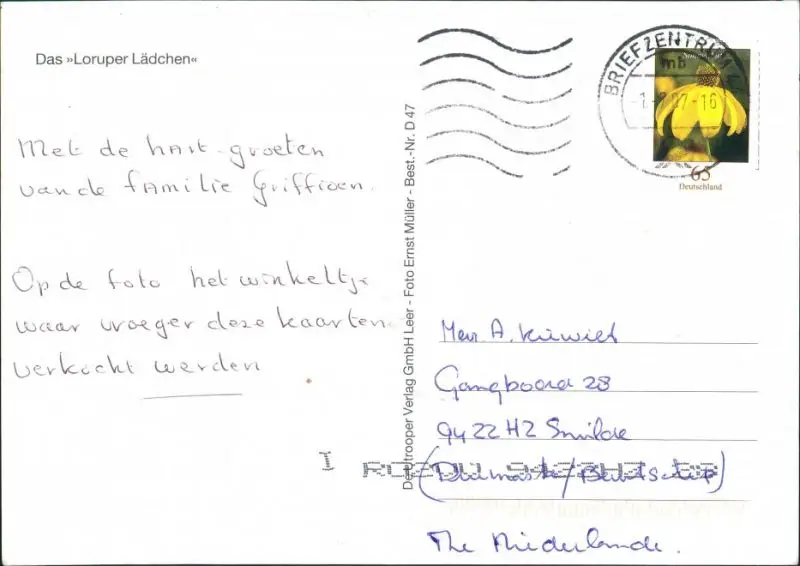 Das »Loruper Lädchen«
Met de hart. groeten
van de familie Griffioen.
Op de foto het winkeltje
waar vroeger deze kaarten
verkocht werden
Verlag GmbH Leer - Foto Ernst Müller - Best.-Nr. D 47
BRIEFZENTRUM
mb
-16
65
Deutschland
A.
Gangboord 28
9422 HZ Smilde
The Niederlande.